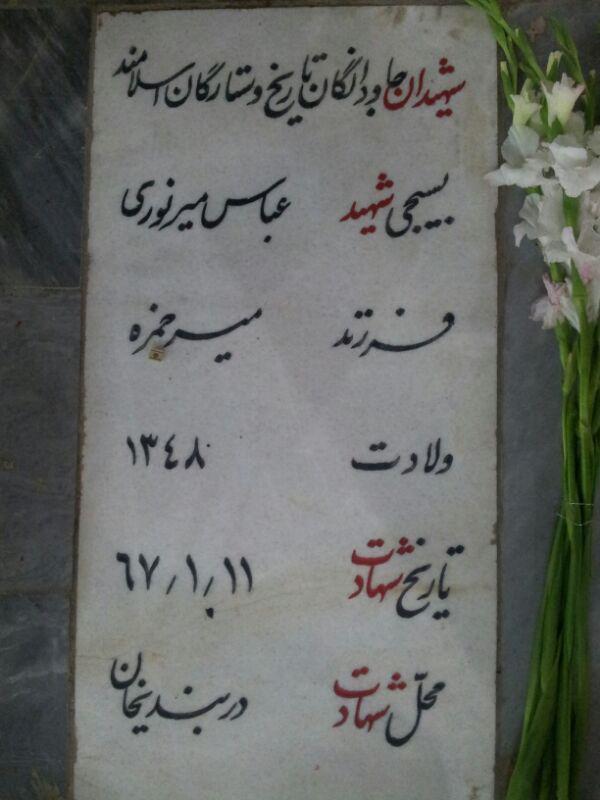 شهیدان جاودانگان تاریخ و ستارگان اسلامند
بسیجی شهید عباس میرنوری
فرزند میرحمزه
ولادت ۱۳۴۸
تاریخ شهادت ۶۷/۱/۱۱
محلّ شهادت دربندیخان